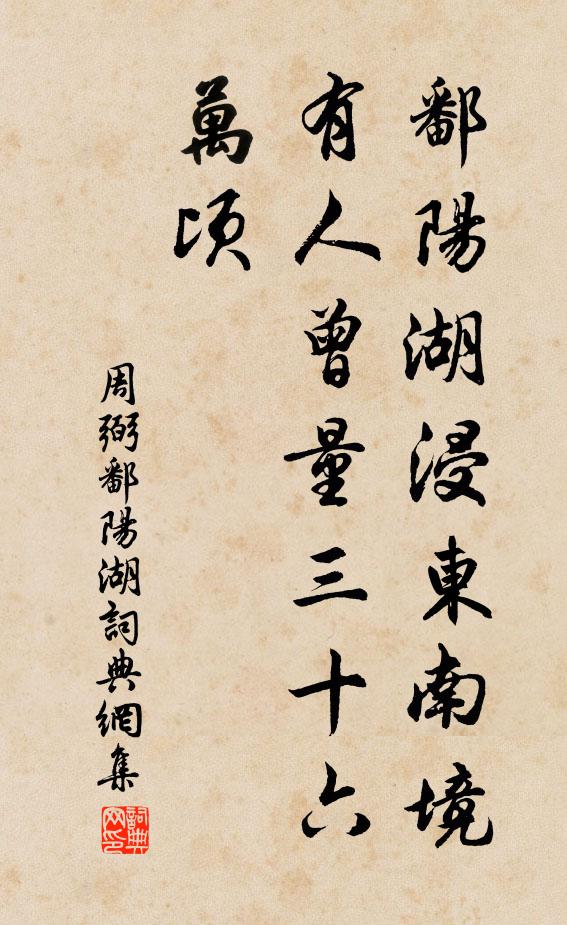 鄱陽湖浸東南境
有人曾量三十六
萬頃
周弼鄱陽湖詞典網集
詞典网印